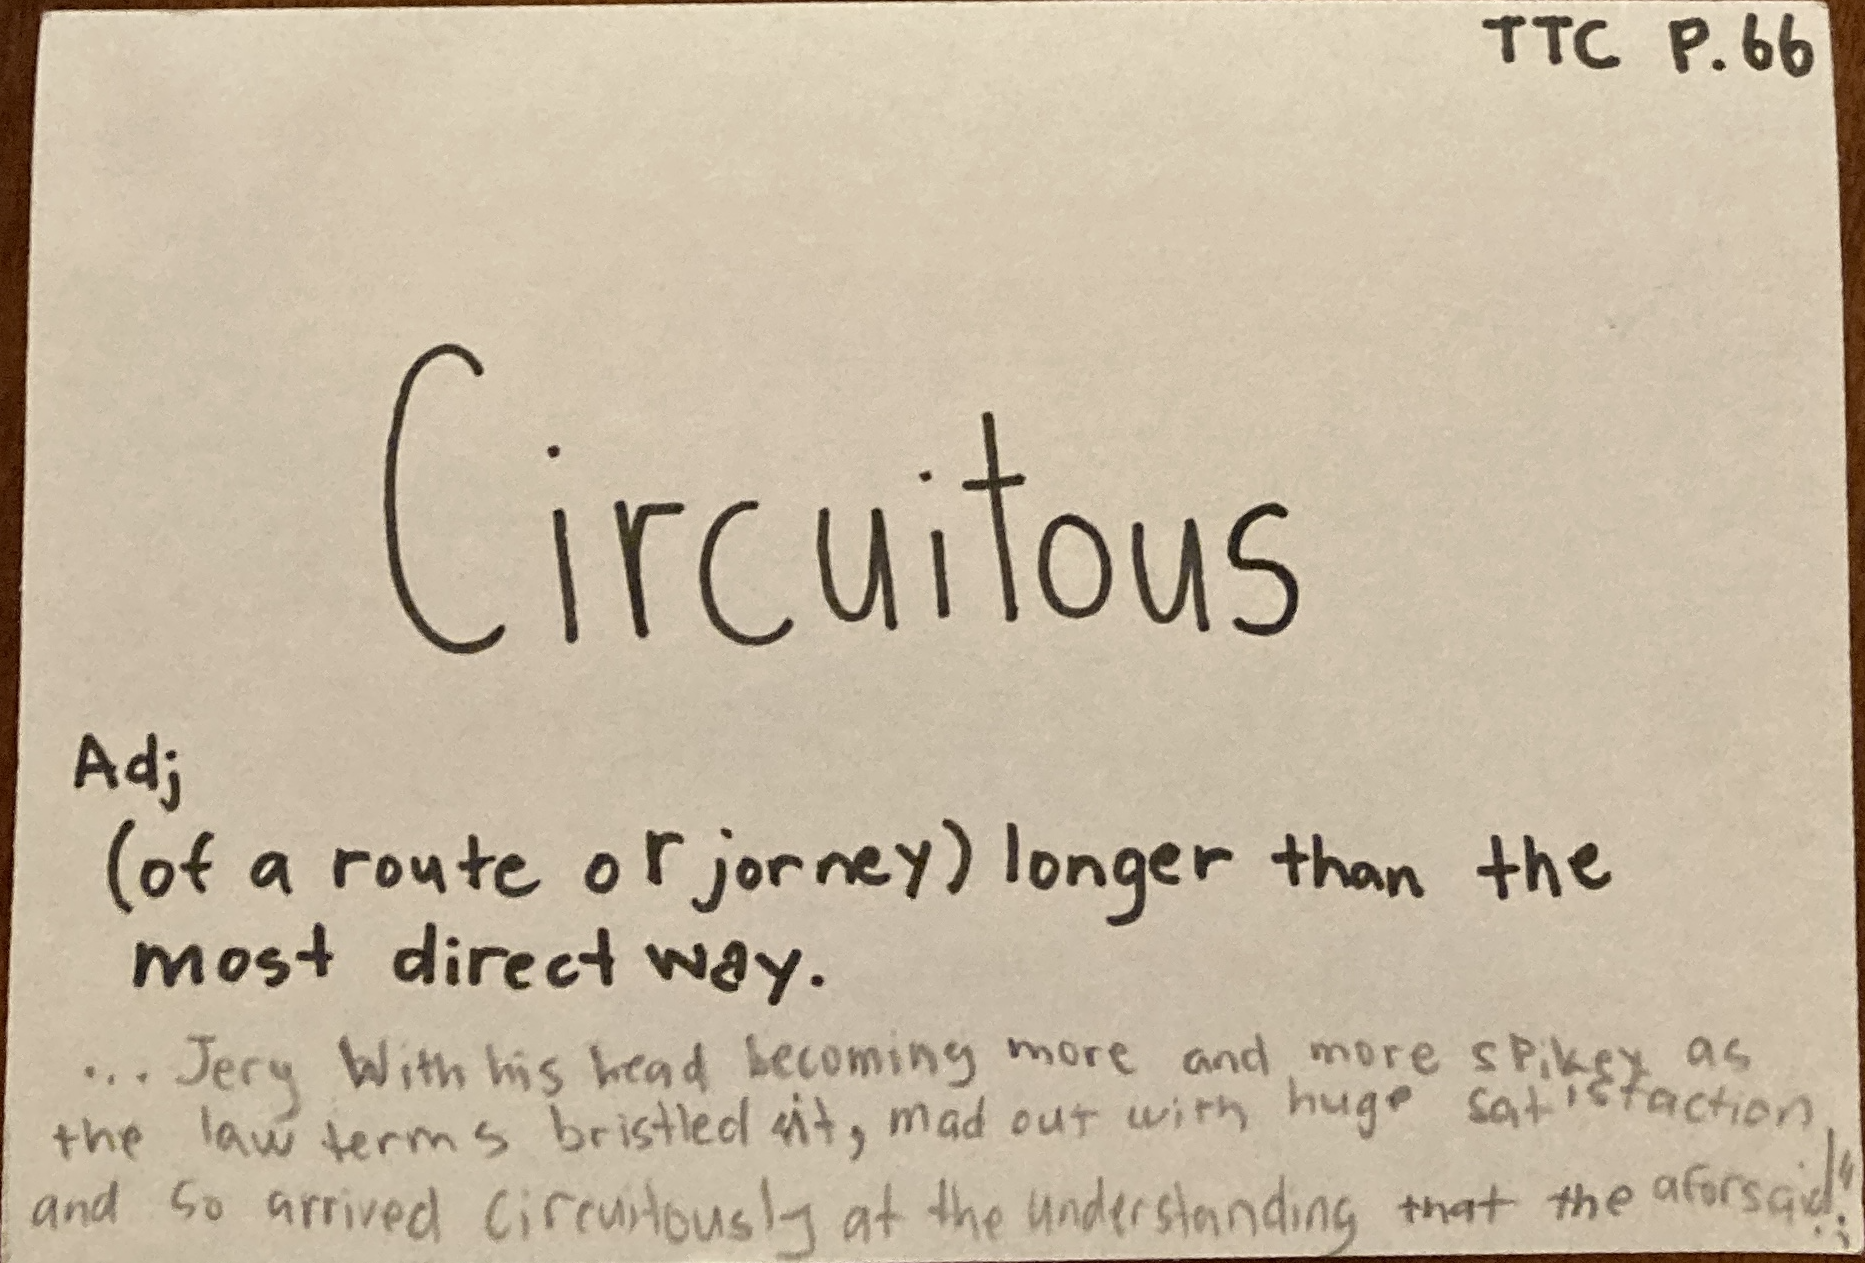 TTC P.66
Circuitous
Adj
(of a route or jorney) longer than the
most direct way.
... Jery With his head becoming more and more spikey as
the law terms bristled it, mad out with huge satisfaction,
and so arrived circuitously at the understanding that the aforsaid